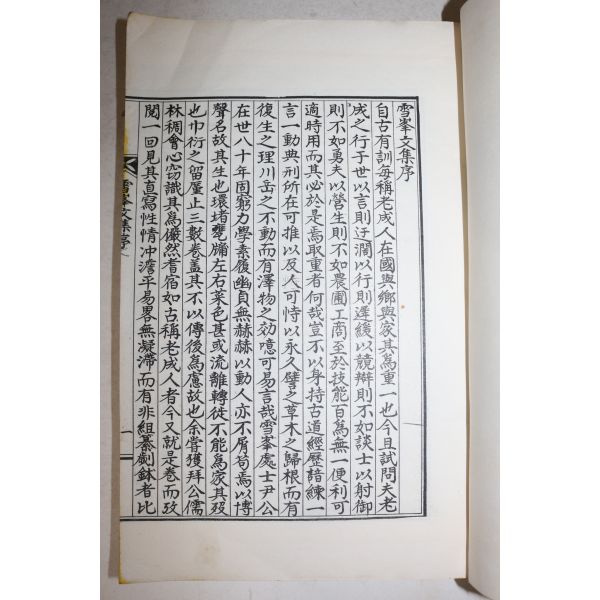 雪峯文集序
自古有訓每稱老成人在國與鄕與家其爲重一也今且試問夫老
成之行于世以言則迂濶以行則遲緩以競辯則不如談士以射御
則不如勇夫以營生則不如農圃工商至於技能百爲無一便利可
適時用而其必於是焉取重者何哉豈不以身持古道經歷諳練一
言一動典刑所在可推以及人可恃以永久譬之草木之歸根而有
復生之理川岳之不動而有澤物之効噫可易言哉雪峯處士尹公
在世八十年固窮力學素履幽貞無赫赫以動人亦不屑苟焉以博
聲名故其生也環堵甕牖左右菜色甚或流離轉徙不能爲家其歿
也巾衍之留厪止三數卷盖其不以傳後爲慮故也余嘗獲拜公儒
林稠會心窃識其爲儼然耆宿如古稱老成人者今又就是卷而攷
閱一回見其直寫性情冲澹平易畧無凝滯而有非組纂劌鉥者比
雪峯文集序
一